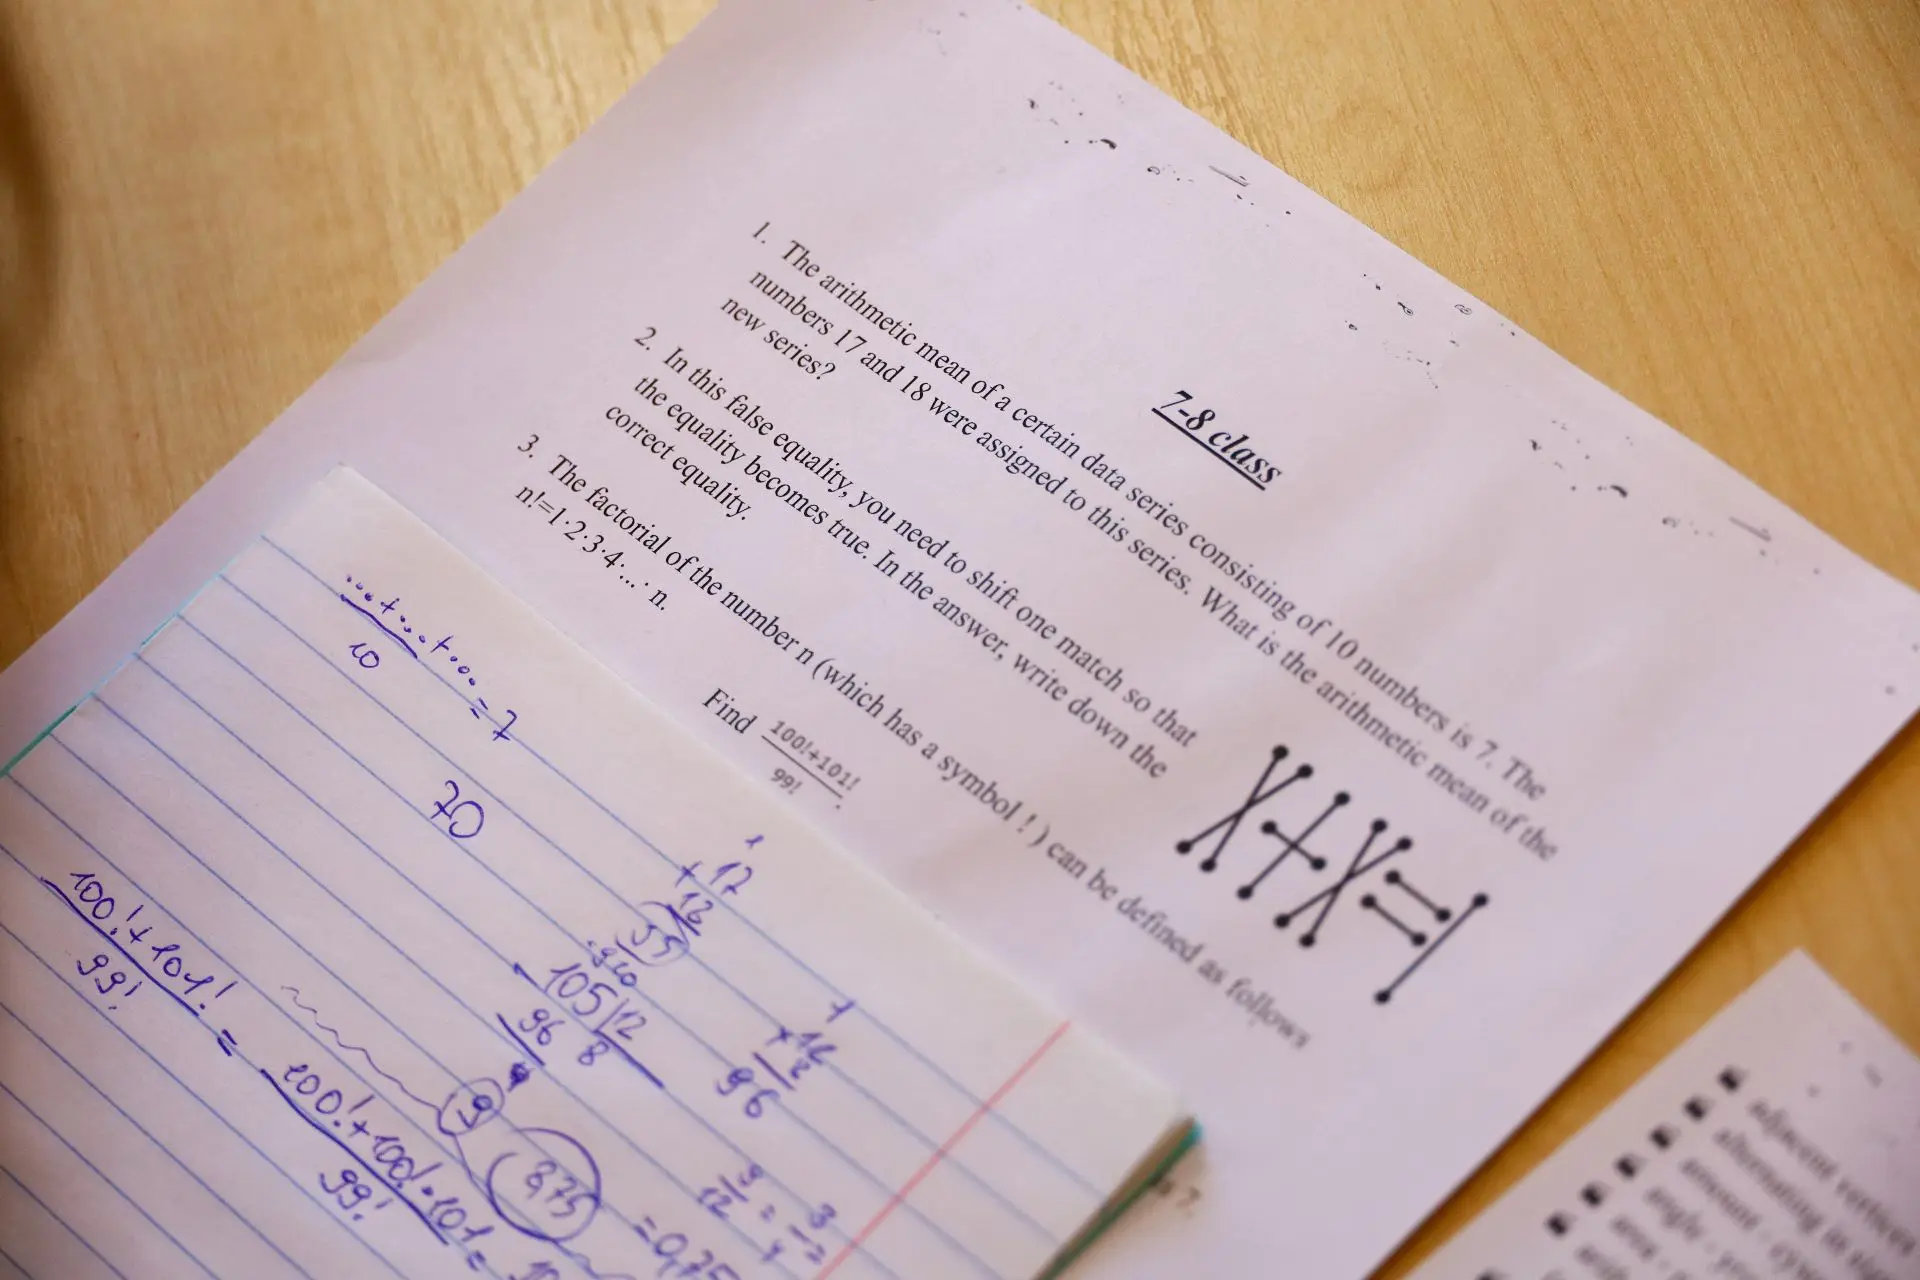 7-8 class
1. The arithmetic mean of a certain data series consisting of 10 numbers is 7. The
numbers 17 and 18 were assigned to this series. What is the arithmetic mean of the
new series?
2. In this false equality, you need to shift one match so that
the equality becomes true. In the answer, write down the
correct equality.
X+X=I
3. The factorial of the number n (which has a symbol ! ) can be defined as follows
n!=1·2·3·4·...· n.
Find 100!+101!
99! .
...+...+... = 7
10
70
1
+ 17
18
35
105 12
96 8
9
8,75
96
9 = 3
12
= 0,75
100!+101! = 100!+100!·101 =
99! 99!
7.
adjacent vertices
alternating
amount
angle
area